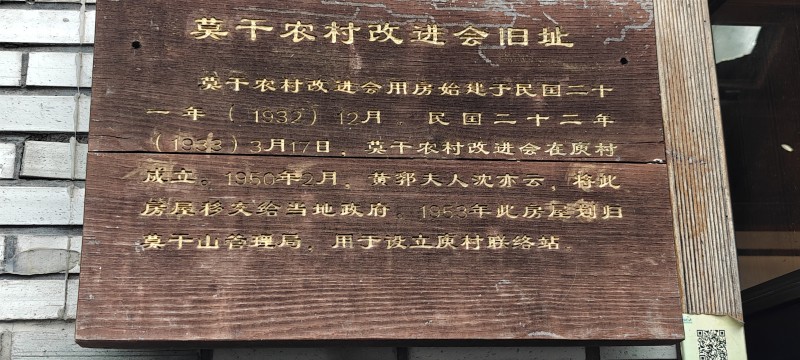 莫干农村改进会旧址
莫干农村改进会用房始建于民国二十
一年（1932）12月．民国二十二年
（1933）3月17日，莫干农村改进会在庾村
成立。1950年2月，黄郛夫人沈亦云，将此
房屋移交给当地政府．1953年此房屋划归
莫干山管理局，用于设立庾村联络站．